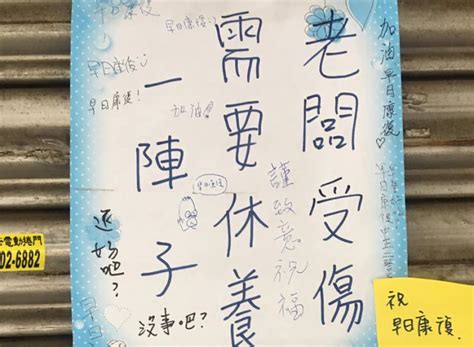 老闆受傷
需要休養
一陣子
加油 早日康復♡
謹致意祝福
早日康復
早日康復:)
早日康復:)
早日康復!
加油!
早日康復
還好吧?
沒事吧?
早日
祝
早日康復.
電動捲門
02-6882